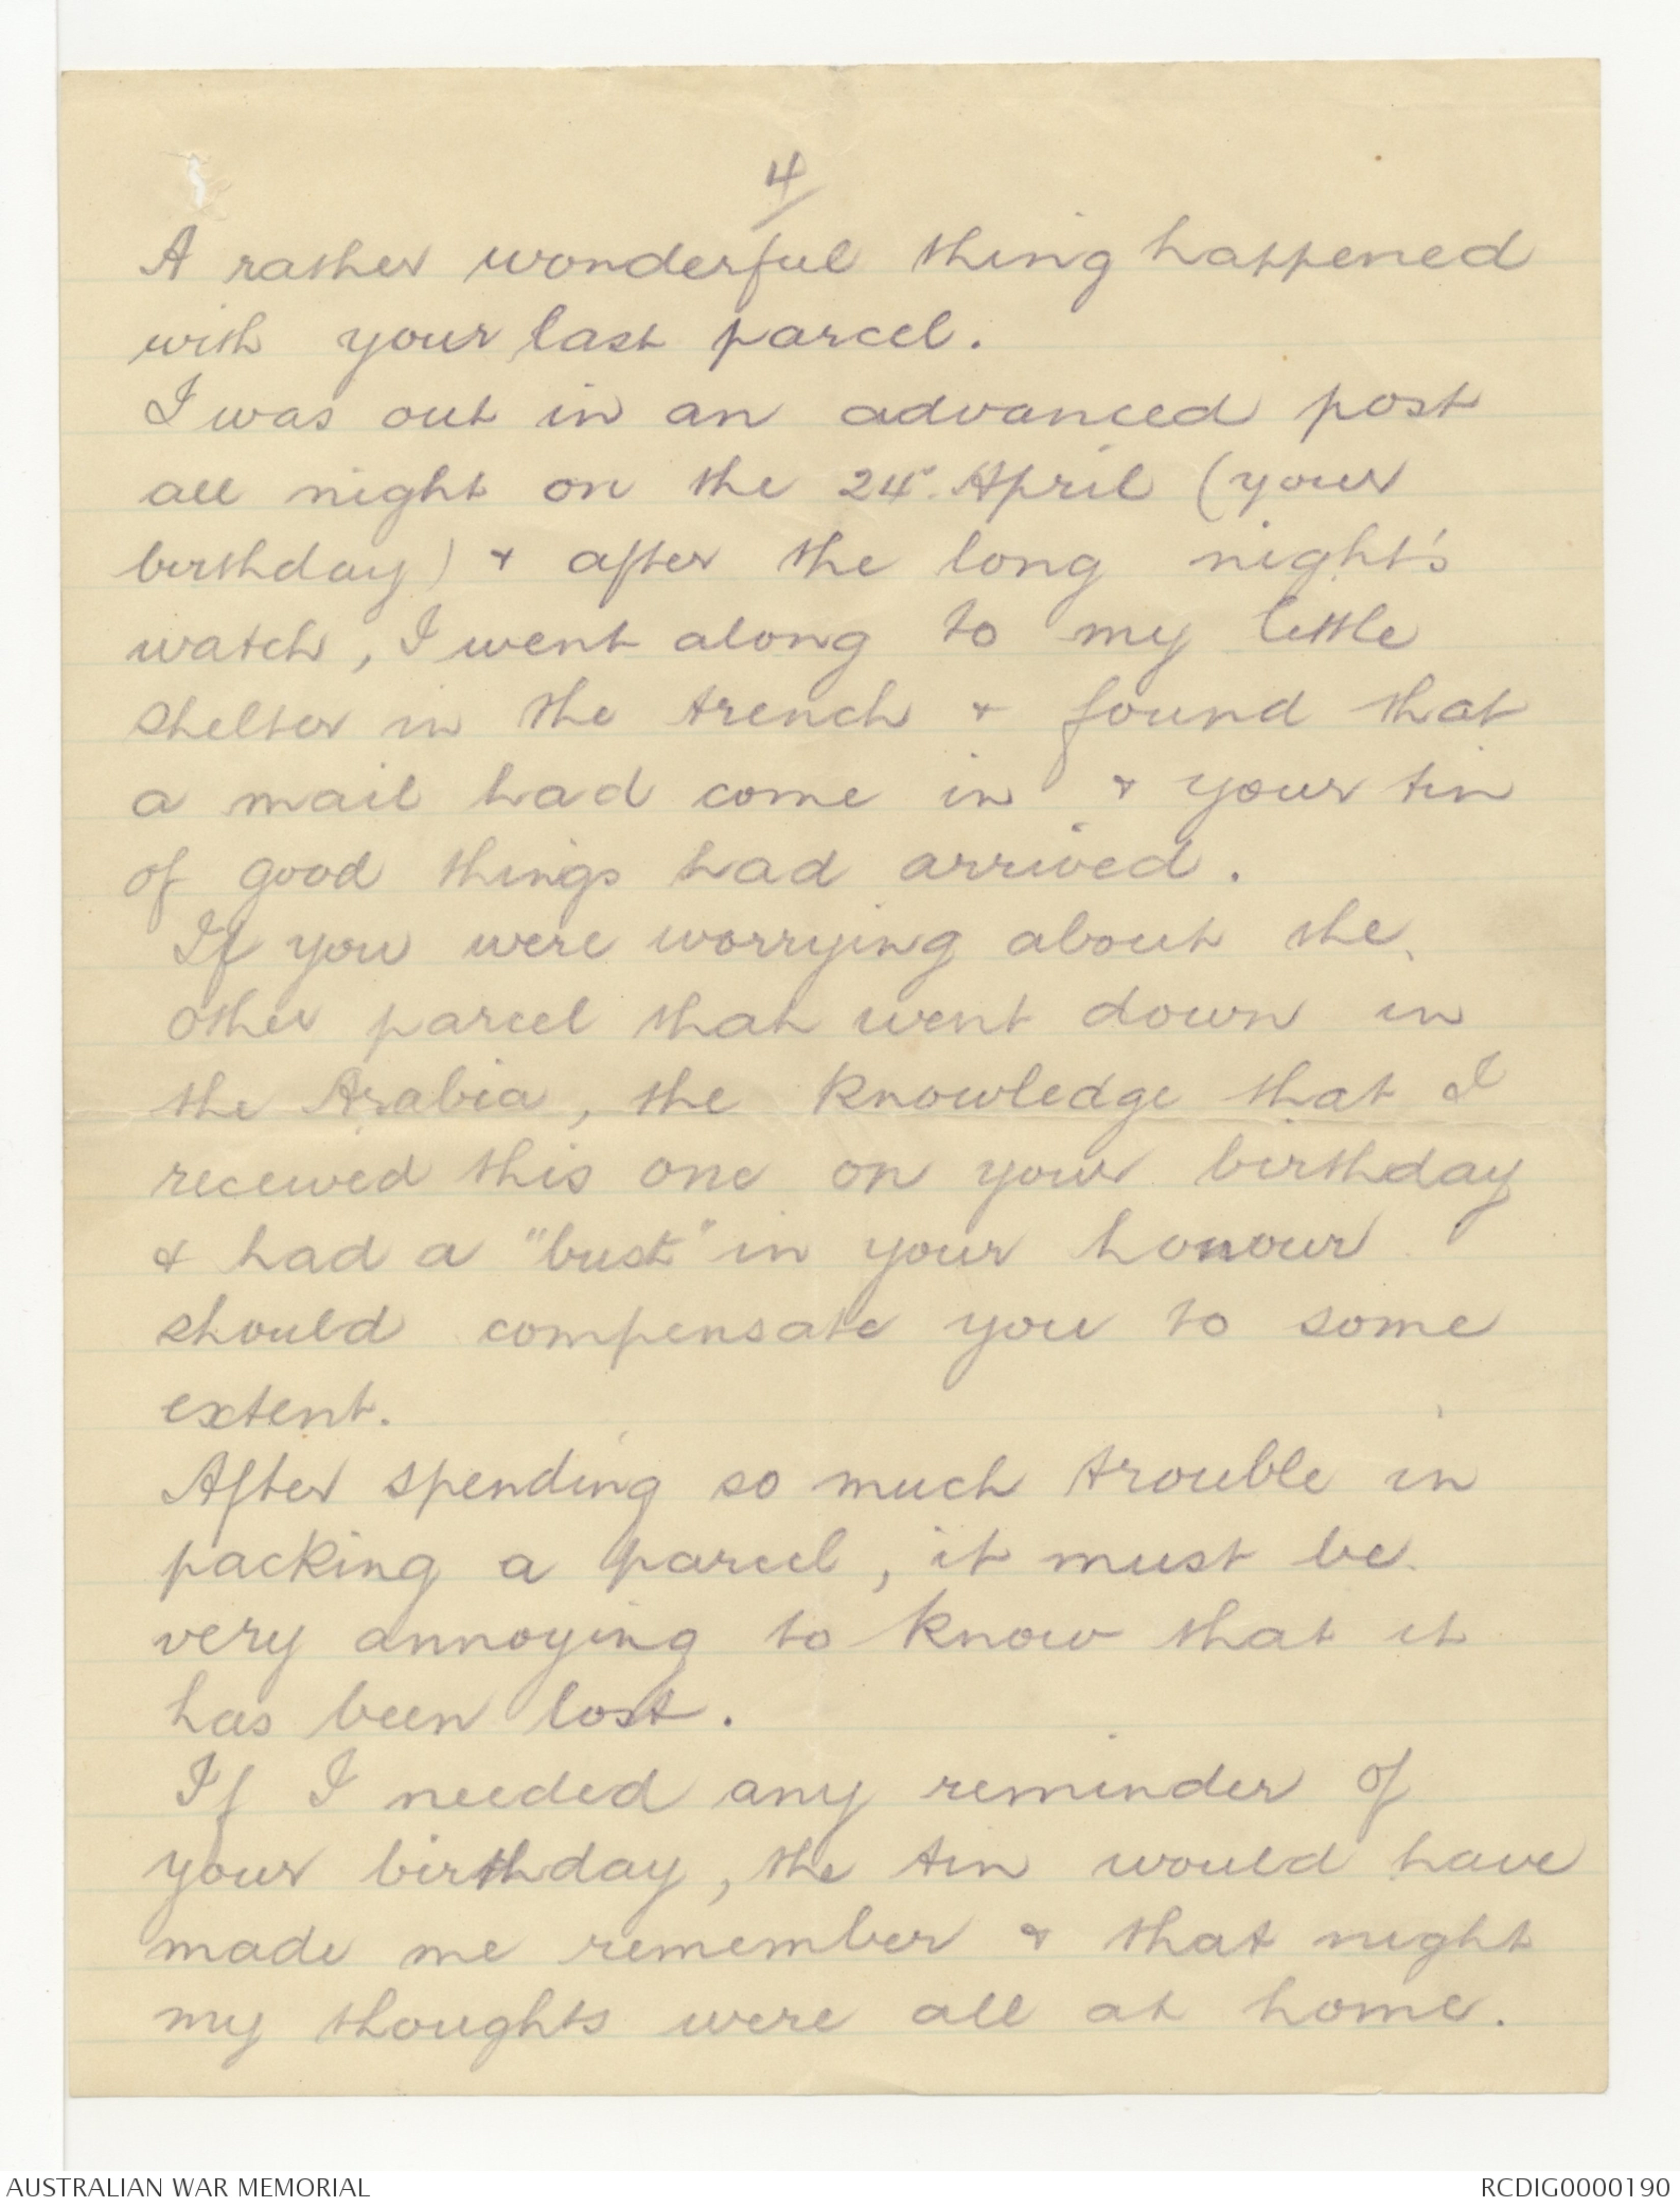 4
A rather wonderful thing happened
with your last parcel.
I was out in an advanced post
all night on the 24th April (your
birthday) & after the long night's
watch, I went along to my little
shelter in the trench & found that
a mail had come in & your tin
of good things had arrived.
If you were worrying about the
other parcel that went down in
the Arabia, the knowledge that I
received this one on your birthday
& had a "bust" in your honour
should compensate you to some
extent.
After spending so much trouble in
packing a parcel, it must be
very annoying to know that it
has been lost.
If I needed any reminder of
your birthday, the tin would have
made me remember & that night
my thoughts were all at home.
AUSTRALIAN WAR MEMORIAL
RCDIG0000190